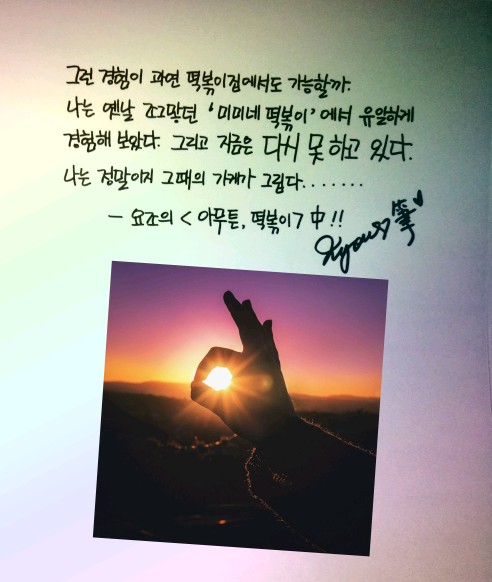 그런 경험이 과연 떡볶이집에서도 가능할까.
나는 옛날 조그맣던 '미미네 떡볶이' 에서 유일하게
경험해 보았다. 그리고 지금은 다시 못 하고 있다.
나는 정말이지 그때의 가게가 그립다.......
- 요조의 < 아무튼, 떡볶이> 中 !!